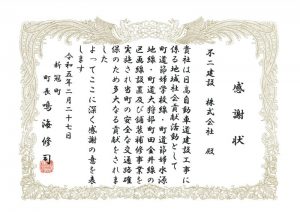 感謝状
不二建設 株式会社 殿
貴社は日高自動車道建設工事に
係る地域社会貢献活動として
町道節婦学校線・町道節婦水源
地線・町道大狩部町田金井線の
区画線設置及び舗装補修事業を
実施され当町の安全な交通路確
保のため多大なる貢献をされま
した
よってここに深く感謝の意を表
します
令和五年二月二十七日
新冠町
町長 鳴海修司